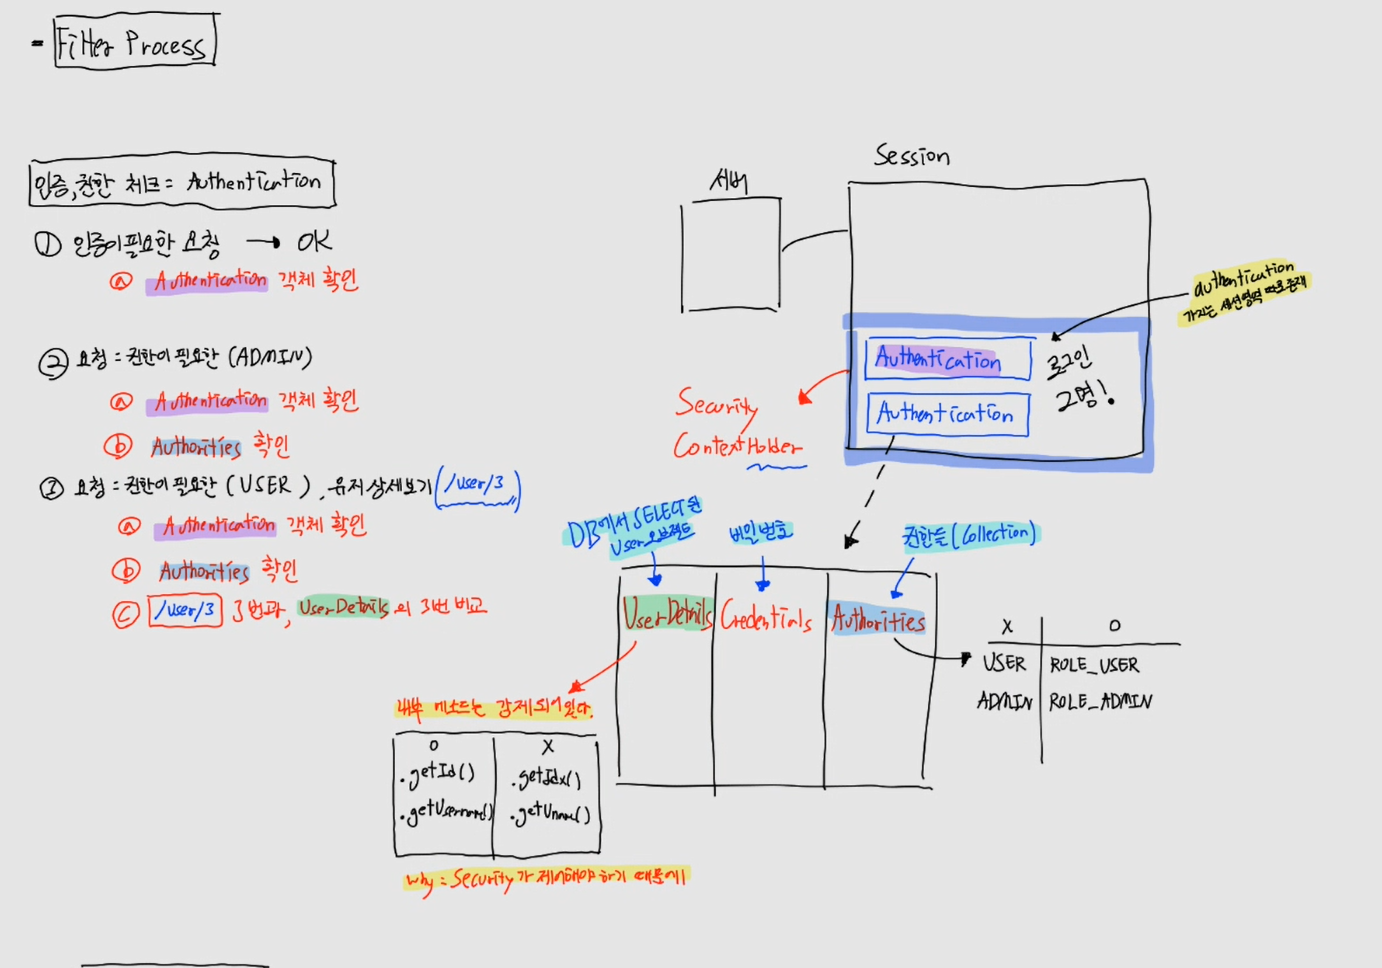 - Filter Process
인증,권한 체크 = Authentication
① 인증이 필요한 요청 → OK
ⓐ Authentication 객체 확인
② 요청 = 권한이 필요한 (ADMIN)
ⓐ Authentication 객체 확인
ⓑ Authorities 확인
③ 요청 = 권한이 필요한 (USER), 유저 상세보기 (/user/3)
ⓐ Authentication 객체 확인
ⓑ Authorities 확인
ⓒ /user/3 3번과, UserDetails의 3번 비교
서버
Session
Authentication
Authentication
로그인
2명!
authentication
가지는 세션영역 따로존재
Security
ContextHolder
DB에서 SELECT된
User오브젝트
비밀번호
권한들 (Collection)
UserDetails
Credentials
Authorities
X O
USER ROLE_USER
ADMIN ROLE_ADMIN
내부 메소드는 강제되어있다.
O X
.getId() .getIdx()
.getUsername() .getUname()
why : Security가 제어해야 하기 때문에